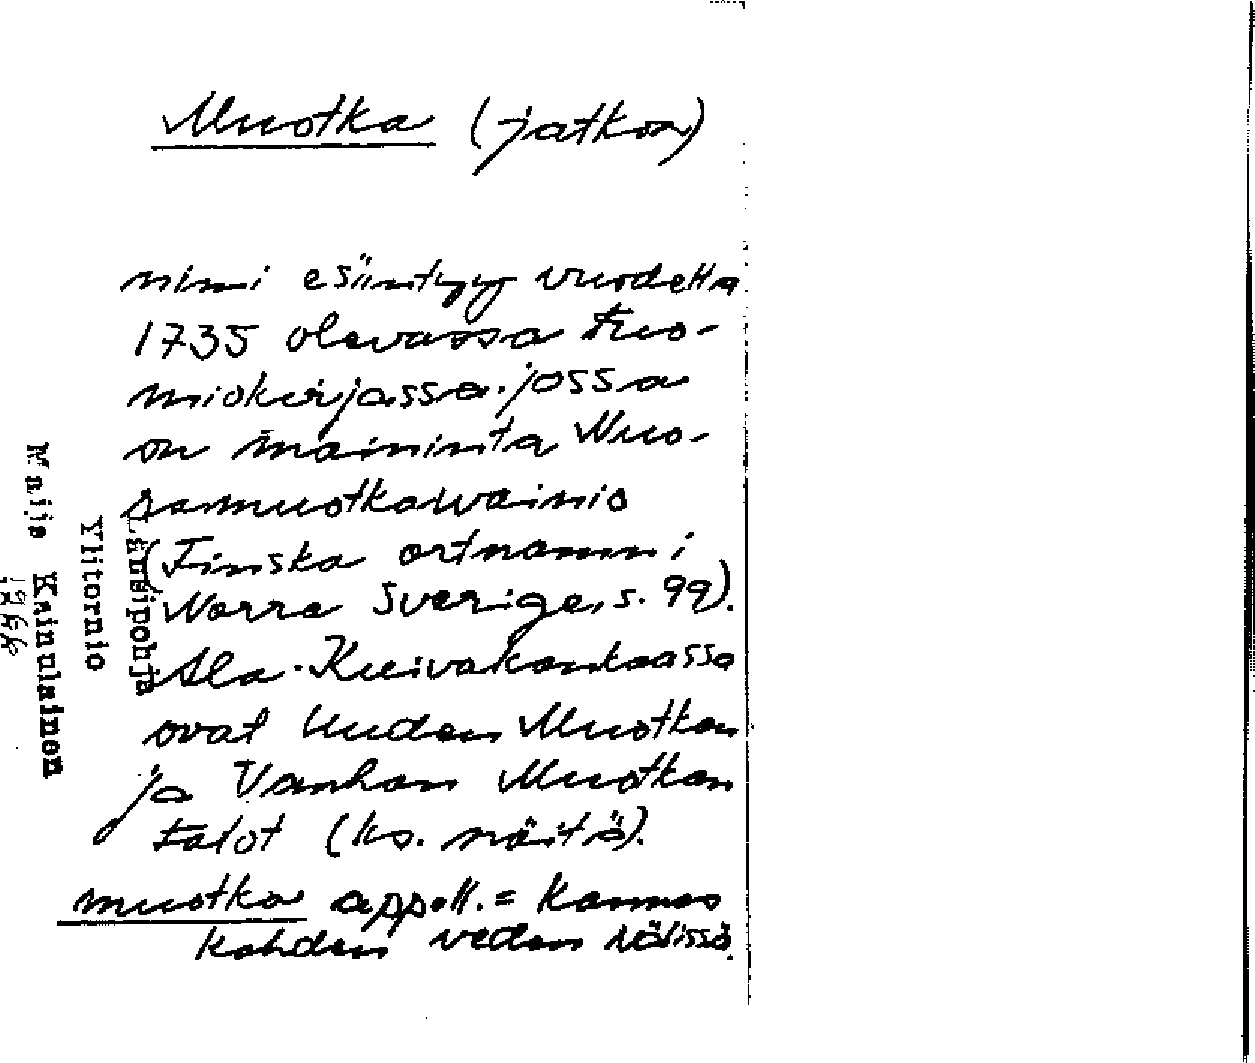 Muotka (jatkoa)
nimi esiintyy vuodelta
1735 olevassa tuo-
miokirjassa. jossa
on maininta Nuo-
samuotkawainio
(Finska ortnamn i
Norra Sverige, s. 99).
Ala-Kuivakankaassa
ovat Uuden Muotkan
ja Vanhan Muotkan
talot (ks. näitä).
muotka appell. = kannas
kahden veden välissä.
Länsipohja
Ylitornio
Maija Kainulainen
1966